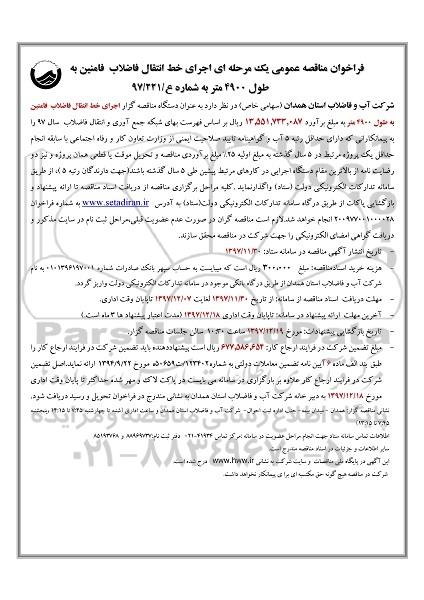 فراخوان مناقصه عمومی یک مرحله ای اجرای خط انتقال فاضلاب فامنین به
طول ۴۹۰۰ متر به شماره ع/۹۷/۲۲۱
شرکت آب و فاضلاب استان همدان (سهامی خاص) در نظر دارد به عنوان دستگاه مناقصه گزار اجرای خط انتقال فاضلاب فامنین
به طول ۴۹۰۰ متر به مبلغ برآورد ۱۳,۵۵۱,۷۳۳,۰۸۷ ریال بر اساس فهرست بهای شبکه جمع آوری و انتقال فاضلاب سال ۹۷ را
به پیمانکارانی که دارای حداقل رتبه ۵ آب و گواهینامه تایید صلاحیت ایمنی از وزارت تعاون کار و رفاه اجتماعی با سابقه انجام
حداقل یک پروژه مرتبط در ۵ سال گذشته به مبلغ اولیه ۲۵٪ مبلغ برآوردی مناقصه و تحویل موقت یا قطعی همان پروژه و نیز دو
رضایت نامه از بالاترین مقام دستگاه اجرایی در کارهای مرتبط پیشین طی ۵ سال گذشته باشند(جهت دارندگان رتبه ۵ )، از طریق
سامانه تدارکات الکترونیکی دولت (ستاد) واگذارنماید .کلیه مراحل برگزاری مناقصه از دریافت اسناد مناقصه تا ارائه پیشنهاد و
بازگشایی پاکات از طریق درگاه سامانه تدارکات الکترونیکی دولت(ستاد) به آدرس www.setadiran.ir به شماره فراخوان
۲۰۰۹۷۷۰۰۱۰۰۰۰۲۸ انجام خواهد شد.لازم است مناقصه گران در صورت عدم عضویت قبلی،مراحل ثبت نام در سایت مذکور و
دریافت گواهی امضای الکترونیکی را جهت شرکت در مناقصه محقق سازند.
- تاریخ انتشار آگهی مناقصه در سامانه ستاد: ۱۳۹۷/۱۱/۳۰
- هزینه خرید اسنادمناقصه: مبلغ ۳۰۰,۰۰۰ ریال است که میبایست به حساب سپهر بانک صادرات شماره ۰۱۰۱۳۹۶۱۹۷۰۰۱ به نام
شرکت آب و فاضلاب استان همدان از طریق درگاه بانکی موجود در سامانه تدارکات الکترونیکی دولت واریز گردد.
- مهلت دریافت اسناد مناقصه از سامانه: از تاریخ ۱۳۹۷/۱۱/۳۰ لغایت ۱۳۹۷/۱۲/۰۷ تاپایان وقت اداری.
- آخرین مهلت ارائه پیشنهادات در سامانه: تاپایان وقت اداری ۱۳۹۷/۱۲/۱۸ (مدت اعتبار پیشنهاد ها ۳ ماه است.)
- تاریخ بازگشایی پیشنهادات: مورخ ۱۳۹۷/۱۲/۱۹ ساعت ۱۰:۳۰ سالن جلسات مناقصه گزار.
- مبلغ تضمین شرکت در فرایند ارجاع کار: ۶۷۷,۵۸۶,۶۵۴ ریال است پیشنهاددهنده باید تضمین شرکت در فرایند ارجاع کار را
طبق بند الف ماده ۶ آیین نامه تضمین معاملات دولتی به شماره ۱۲۳۴۰۲/ت۵۰۶۵۹ه مورخ ۱۳۹۴/۹/۲۲ ارائه نمایند.اصل تضمین
شرکت در فرایند ارجاع کار علاوه بر بارگزاری در سامانه می بایست در پاکت لاک و مهر شده حداکثر تا پایان وقت اداری
مورخ ۱۳۹۷/۱۲/۱۸ به دبیر خانه شرکت آب و فاضلاب استان همدان به نشانی مندرج در فراخوان تحویل و رسید دریافت شود.
نشانی مناقصه گزار: همدان - میدان بیمه- جنب اداره ثبت احوال- شرکت آب و فاضلاب استان همدان و ساعت اداری (شنبه تا چهارشنبه ۷:۴۵ تا ۱۴:۱۵ وپنجشنبه
۷:۴۵ تا ۱۳:۱۵)
اطلاعات تماس سامانه ستاد جهت انجام مراحل عضویت در سامانه :مرکز تماس ۴۱۹۳۴-۰۲۱ دفتر ثبت نام:۸۸۹۶۹۷۳۷ و ۸۵۱۹۳۷۶۸
سایر اطلاعات و جزئیات در اسناد مناقصه مندرج است.
این آگهی در پایگاه ملی مناقصات و سایت شرکت به نشانی www.hww.ir درج شده است.
شرکت در مناقصه هیچ گونه حق مکتسبه ای برای پیمانکار نخواهد داشت.